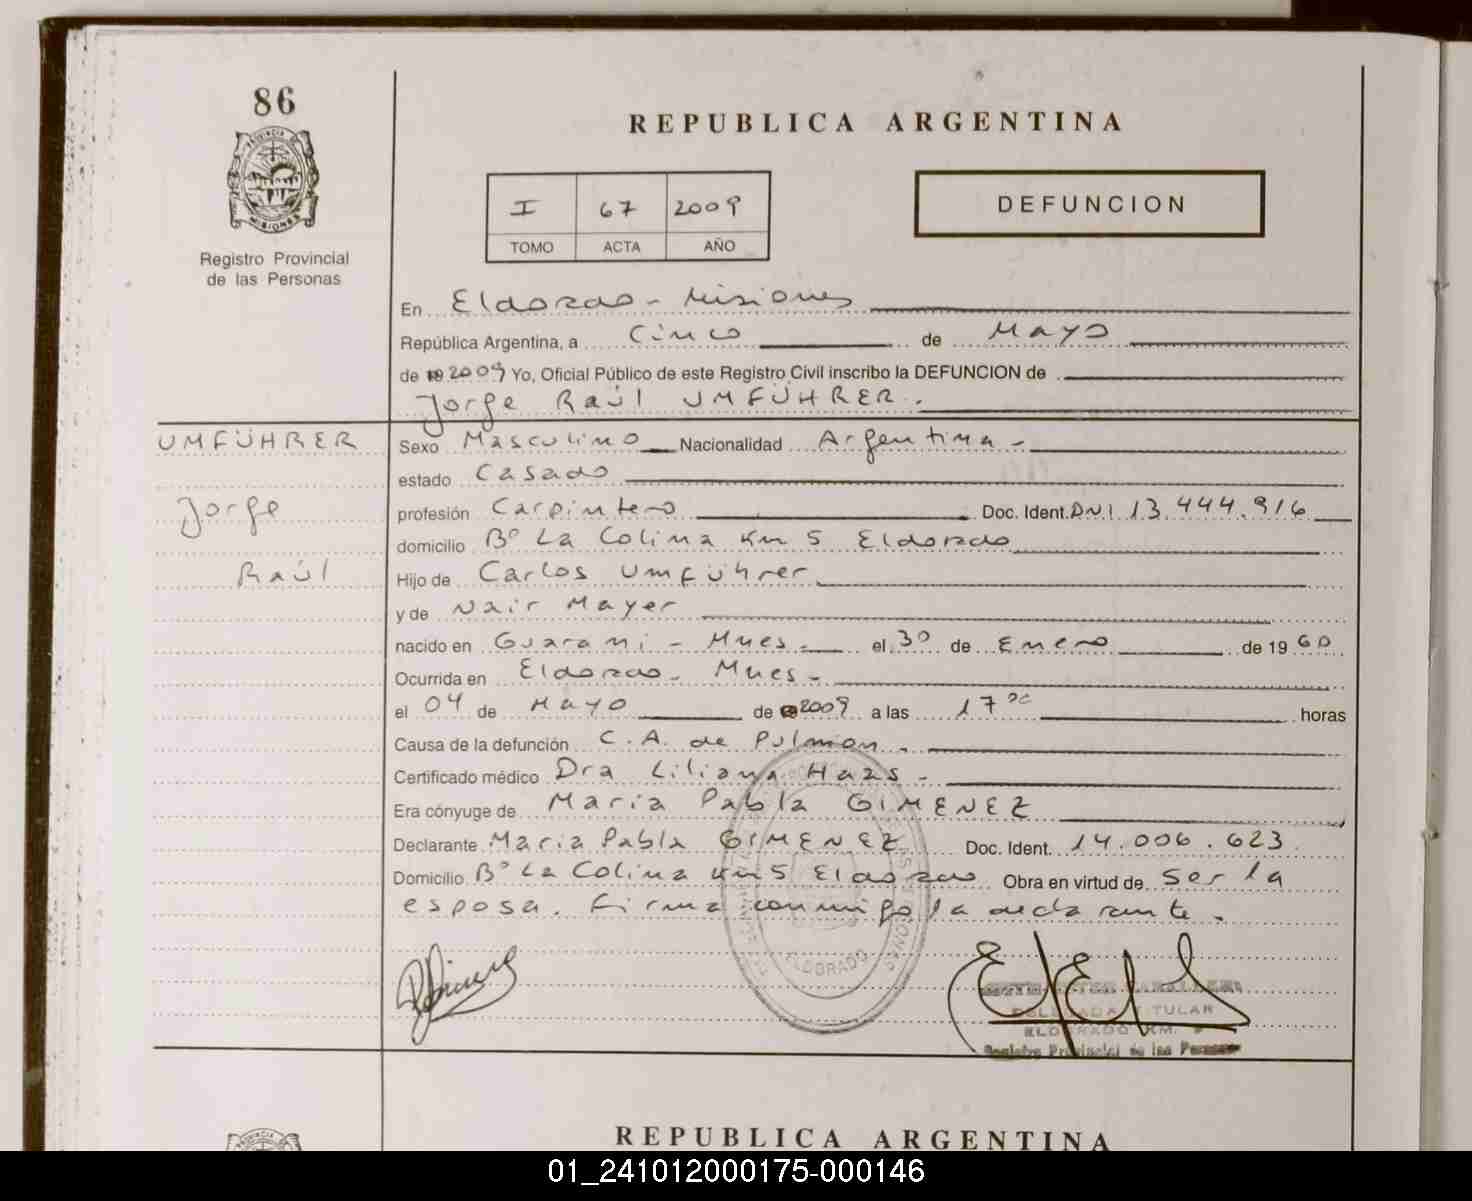 86
PROVINCIA
MISIONES
Registro Provincial
de las Personas
REPUBLICA ARGENTINA
I 67 2009
TOMO ACTA AÑO
DEFUNCION
En Eldorado - Misiones
República Argentina, a Cinco de Mayo
de 2009 Yo, Oficial Público de este Registro Civil inscribo la DEFUNCION de
Jorge Raúl UMFÜHRER.
UMFÜHRER
Jorge
Raúl
Sexo Masculino Nacionalidad Argentina -
estado Casado
profesión Carpintero Doc. Ident. DNI 13.444.916
domicilio Bº La Colina Km 5 Eldorado
Hijo de Carlos Umführer
y de Nair Mayer
nacido en Guarani - Mnes - el 30 de Enero de 1960
Ocurrida en Eldorado - Mnes -
el 04 de Mayo de 2009 a las 17 horas
Causa de la defunción C. A. de Pulmon.
Certificado médico Dra Liliana Haas -
Era cónyuge de Maria Pabla GIMENEZ
Declarante Maria Pabla GIMENEZ Doc. Ident. 14.006.623
Domicilio Bº La Colina Km 5 Eldorado Obra en virtud de Ser la
esposa. Firma conmigo la declarante.
ELDORADO
TITULAR
ELDORADO KM.
Registro Provincial de las Personas
REPUBLICA ARGENTINA
01_241012000175-000146